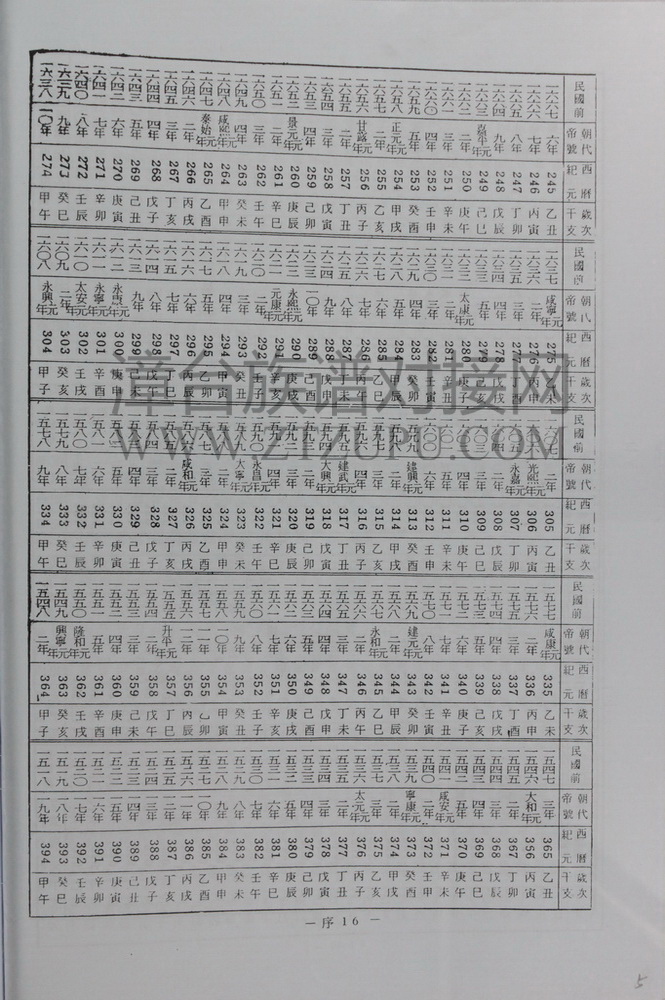 民國前 朝代帝號 西曆紀元 歲次干支
一六六七 六年 245 乙丑
一六六六 七年 246 丙寅
一六六五 八年 247 丁卯
一六六四 九年 248 戊辰
一六六三 嘉平元年 249 己巳
一六六二 二年 250 庚午
一六六一 三年 251 辛未
一六六〇 四年 252 壬申
一六五九 五年 253 癸酉
一六五八 正元元年 254 甲戌
一六五七 二年 255 乙亥
一六五六 甘露元年 256 丙子
一六五五 二年 257 丁丑
一六五四 三年 258 戊寅
一六五三 四年 259 己卯
一六五二 景元元年 260 庚辰
一六五一 二年 261 辛巳
一六五〇 三年 262 壬午
一六四九 四年 263 癸未
一六四八 咸熙元年 264 甲申
一六四七 泰始元年 265 乙酉
一六四六 二年 266 丙戌
一六四五 三年 267 丁亥
一六四四 四年 268 戊子
一六四三 五年 269 己丑
一六四二 六年 270 庚寅
一六四一 七年 271 辛卯
一六四〇 八年 272 壬辰
一六三九 九年 273 癸巳
一六三八 一〇年 274 甲午
民國前 朝代帝號 西曆紀元 歲次干支
一六三七 咸寧元年 275 乙未
一六三六 二年 276 丙申
一六三五 三年 277 丁酉
一六三四 四年 278 戊戌
一六三三 五年 279 己亥
一六三二 太康元年 280 庚子
一六三一 二年 281 辛丑
一六三〇 三年 282 壬寅
一六二九 四年 283 癸卯
一六二八 五年 284 甲辰
一六二七 六年 285 乙巳
一六二六 七年 286 丙午
一六二五 八年 287 丁未
一六二四 九年 288 戊申
一六二三 一〇年 289 己酉
一六二二 永熙元年 290 庚戌
一六二一 元康元年 291 辛亥
一六二〇 二年 292 壬子
一六一九 三年 293 癸丑
一六一八 四年 294 甲寅
一六一七 五年 295 乙卯
一六一六 六年 296 丙辰
一六一五 七年 297 丁巳
一六一四 八年 298 戊午
一六一三 九年 299 己未
一六一二 永康元年 300 庚申
一六一一 永寧元年 301 辛酉
一六一〇 太安元年 302 壬戌
一六〇九 二年 303 癸亥
一六〇八 永興元年 304 甲子
民國前 朝代帝號 西曆紀元 歲次干支
一六〇七 二年 305 乙丑
一六〇六 光熙元年 306 丙寅
一六〇五 永嘉元年 307 丁卯
一六〇四 二年 308 戊辰
一六〇三 三年 309 己巳
一六〇二 四年 310 庚午
一六〇一 五年 311 辛未
一六〇〇 六年 312 壬申
一五九九 建興元年 313 癸酉
一五九八 二年 314 甲戌
一五九七 三年 315 乙亥
一五九六 四年 316 丙子
一五九五 建武元年 317 丁丑
一五九四 大興元年 318 戊寅
一五九三 二年 319 己卯
一五九二 三年 320 庚辰
一五九一 四年 321 辛巳
一五九〇 永昌元年 322 壬午
一五八九 大寧元年 323 癸未
一五八八 二年 324 甲申
一五八七 三年 325 乙酉
一五八六 咸和元年 326 丙戌
一五八五 二年 327 丁亥
一五八四 三年 328 戊子
一五八三 四年 329 己丑
一五八二 五年 330 庚寅
一五八一 六年 331 辛卯
一五八〇 七年 332 壬辰
一五七九 八年 333 癸巳
一五七八 九年 334 甲午
民國前 朝代帝號 西曆紀元 歲次干支
一五七七 咸康元年 345 乙未
一五七六 二年 336 丙申
一五七五 三年 337 丁酉
一五七四 四年 338 戊戌
一五七三 五年 339 己亥
一五七二 六年 340 庚子
一五七一 七年 341 辛丑
一五七〇 八年 342 壬寅
一五六九 建元元年 343 癸卯
一五六八 二年 344 甲辰
一五六七 永和元年 345 乙巳
一五六六 二年 346 丙午
一五六五 三年 347 丁未
一五六四 四年 348 戊申
一五六三 五年 349 己酉
一五六二 六年 350 庚戌
一五六一 七年 351 辛亥
一五六〇 八年 352 壬子
一五五九 九年 353 癸丑
一五五八 一〇年 354 甲寅
一五五七 一一年 355 乙卯
一五五六 一二年 356 丙辰
一五五五 升平元年 357 丁巳
一五五四 二年 358 戊午
一五五三 三年 359 己未
一五五二 四年 360 庚申
一五五一 五年 361 辛酉
一五五〇 隆和元年 362 壬戌
一五四九 興寧元年 363 癸亥
一五四八 二年 364 甲子
民國前 朝代帝號 西曆紀元 歲次干支
一五四七 三年 365 乙丑
一五四六 太和元年 366 丙寅
一五四五 二年 367 丁卯
一五四四 三年 368 戊辰
一五四三 四年 369 己巳
一五四二 五年 370 庚午
一五四一 咸安元年 371 辛未
一五四〇 二年 372 壬申
一五三九 寧康元年 373 癸酉
一五三八 二年 374 甲戌
一五三七 三年 375 乙亥
一五三六 太元元年 376 丙子
一五三五 二年 377 丁丑
一五三四 三年 378 戊寅
一五三三 四年 379 己卯
一五三二 五年 380 庚辰
一五三一 六年 381 辛巳
一五三〇 七年 382 壬午
一五二九 八年 383 癸未
一五二八 九年 384 甲申
一五二七 一〇年 385 乙酉
一五二六 一一年 386 丙戌
一五二五 一二年 387 丁亥
一五二四 一三年 388 戊子
一五二三 一四年 389 己丑
一五二二 一五年 390 庚寅
一五二一 一六年 391 辛卯
一五二〇 一七年 392 壬辰
一五一九 一八年 393 癸巳
一五一八 一九年 394 甲午
—序16—
5
库台族谱对接网
WWW.ZTZUPU.COM